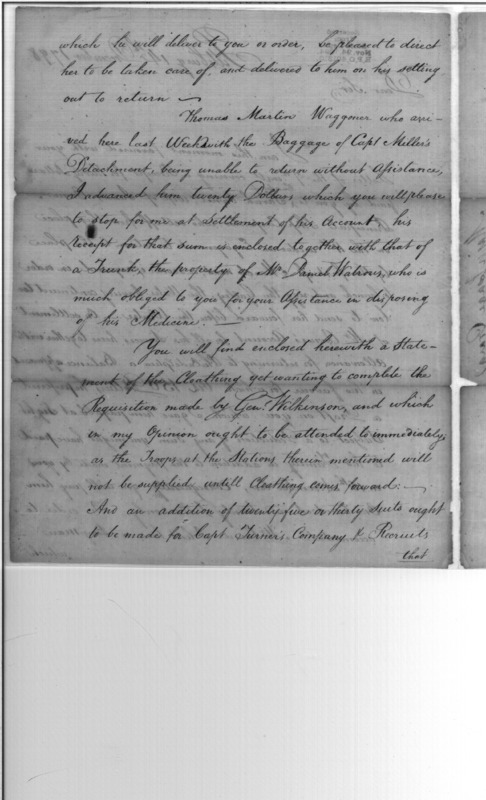 which he will deliver to you or order, be pleased to direct
her to be taken care of, and delivered to him on his setting
out to return —
Thomas Martin Waggoner who arri-
ved here last Week with the Baggage of Capt Miller's
Detachment, being unable to return without Assistance,
I advanced him twenty Dollars which you will please
to stop for me at Settlement of his Account his
Receipt for that sum is enclosed together with that of
a Trunk, the property of Mr Daniel Watrous, who is
much obliged to you for your Assistance in disposing
of his Medicine. —
You will find enclosed herewith a State-
ment of the Cloathing yet wanting to complete the
Requisition made by Genl. Wilkinson, and which
in my Opinion ought to be attended to immediately,
as the Troops at the Stations therein mentioned will
not be supplied untill Cloathing comes forward: —
And an addition of twenty five or thirty Suits ought
to be made for Capt Turner's Company & Recruits
that